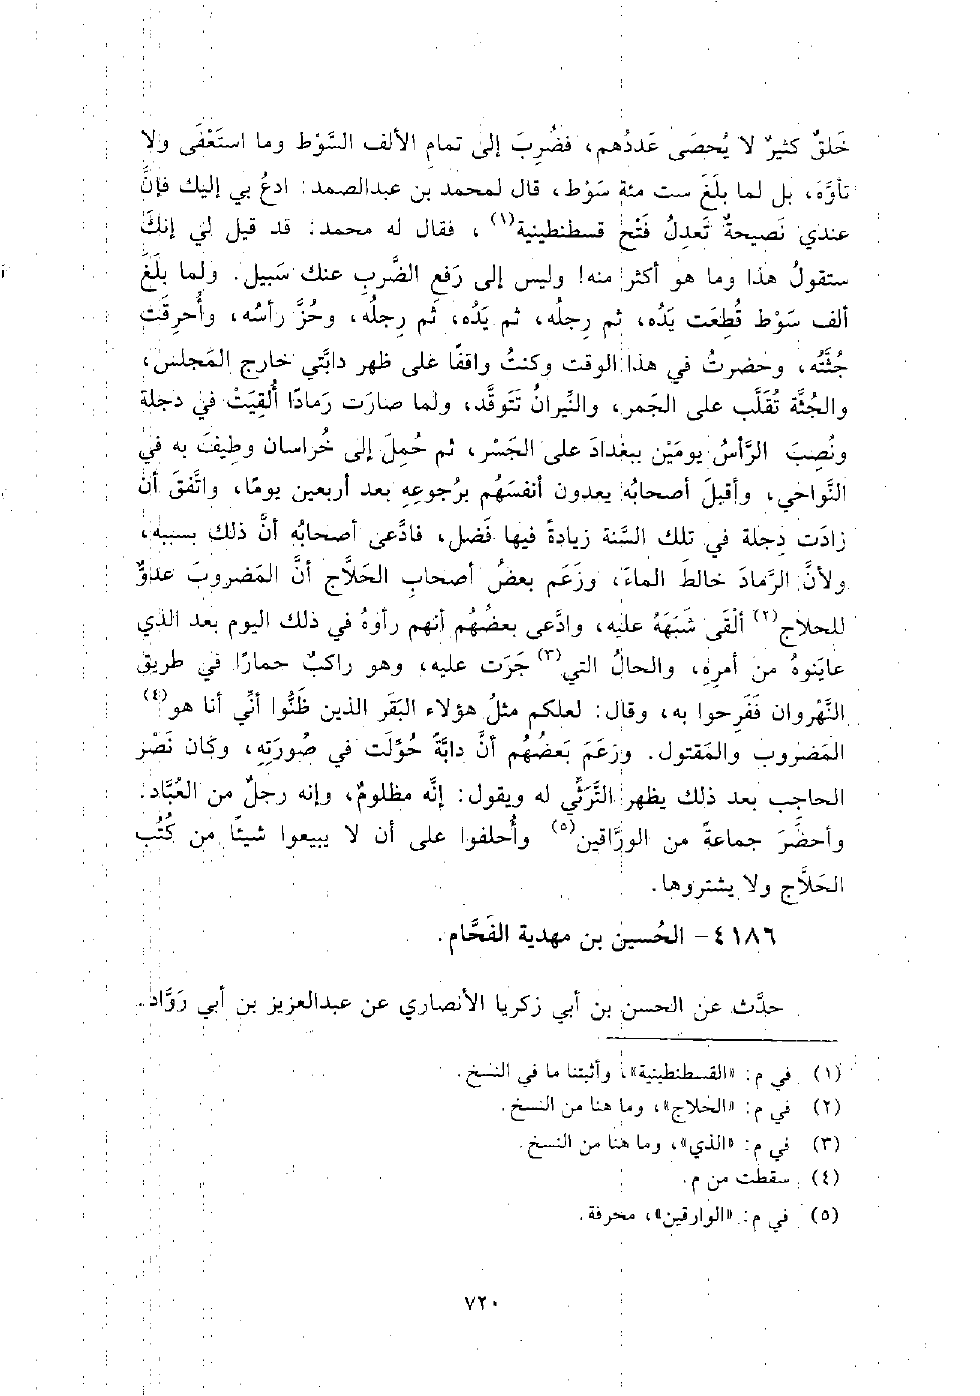 خَلقٌ كثيرٌ لا يُحصَى عَددُهم، فضُرِبَ إلى تمام الألف السَّوْط وما استَعْفَى ولا
تأوَّهَ، بل لما بلَغَ ست مئة سَوْط، قال لمحمد بن عبدالصمد: ادعُ بي إليك فإنَّ
عندي نَصيحةٌ تَعدِلُ فَتْحَ قسطنطينية(١)، فقال له محمد: قد قيل لي إنك
ستقولُ هذا وما هو أكثر منه! وليس إلى رَفع الضَّربِ عنك سَبيل. ولما بلَغَ
ألف سَوْط قُطِعَت يَدُه، ثم رِجلُه، ثم يَدُه، ثم رِجلُه، وحُزَّ رأسُه، وأُحرِقَت
جُثَّتُه، وحضرتُ في هذا الوقت وكنتُ واقفًا على ظهر دابَّتي خارج المَجلس،
والجُثَّة تُقَلَّب على الجَمر، والنِّيرانُ تَتَوقَّد، ولما صارَت رَمادًا أُلقِيَتْ في دجلة
ونُصِبَ الرَّأسُ يومَيْن ببغدادَ على الجَسْر، ثم حُمِلَ إلى خُراسان وطِيفَ به في
النَّواحي، وأقبلَ أصحابُه يعدون أنفسَهُم برُجوعِهِ بعد أربعين يومًا، واتَّفقَ أن
زادَت دِجلة في تلك السَّنة زيادةً فيها فَضل، فادَّعى أصحابُه أنَّ ذلك بسببه،
ولأنَّ الرَّمادَ خالطَ الماءَ، وزَعَم بعضُ أصحابِ الحَلَّاج أنَّ المَضروبَ عدوٌّ
للحلاج(٢) ألْقَى شَبَهَهُ عليه، وادَّعى بعضُهم أنهم رأوهُ في ذلك اليوم بعد الذي
عاينوهُ من أمرِهِ، والحالُ التي(٣) جَرَت عليه، وهو راكبٌ حمارًا في طريق
النَّهْروان فَفَرِحوا به، وقال: لعلكم مثلُ هؤلاء البَقَر الذين ظَنُّوا أنِّي أنا هو(٤)
المَضروب والمَقتول. وزعَمَ بَعضُهُم أنَّ دابَّةً حُوِّلَت في صُورَتِهِ، وكان نَصْر
الحاجب بعد ذلك يظهر التَّرَثِّي له ويقول: إنَّه مظلومٌ، وإنه رجلٌ من العُبَّاد.
وأُحضِرَ جماعةً من الورَّاقين(٥) وأُحلفوا على أن لا يبيعوا شيئًا من كُتُب
الحَلَّاج ولا يشتروها.
٤١٨٦- الحُسين بن مهدية الفَحَّام.
حدَّث عن الحسن بن أبي زكريا الأنصاري عن عبدالعزيز بن أبي رَوَّاد.
(١) في م: «القسطنطينية»، وأثبتنا ما في النسخ.
(٢) في م: «الحلاج»، وما هنا من النسخ.
(٣) في م: «الذي»، وما هنا من النسخ.
(٤) سقطت من م.
(٥) في م: «الوارقين»، محرفة.
٧٢٠